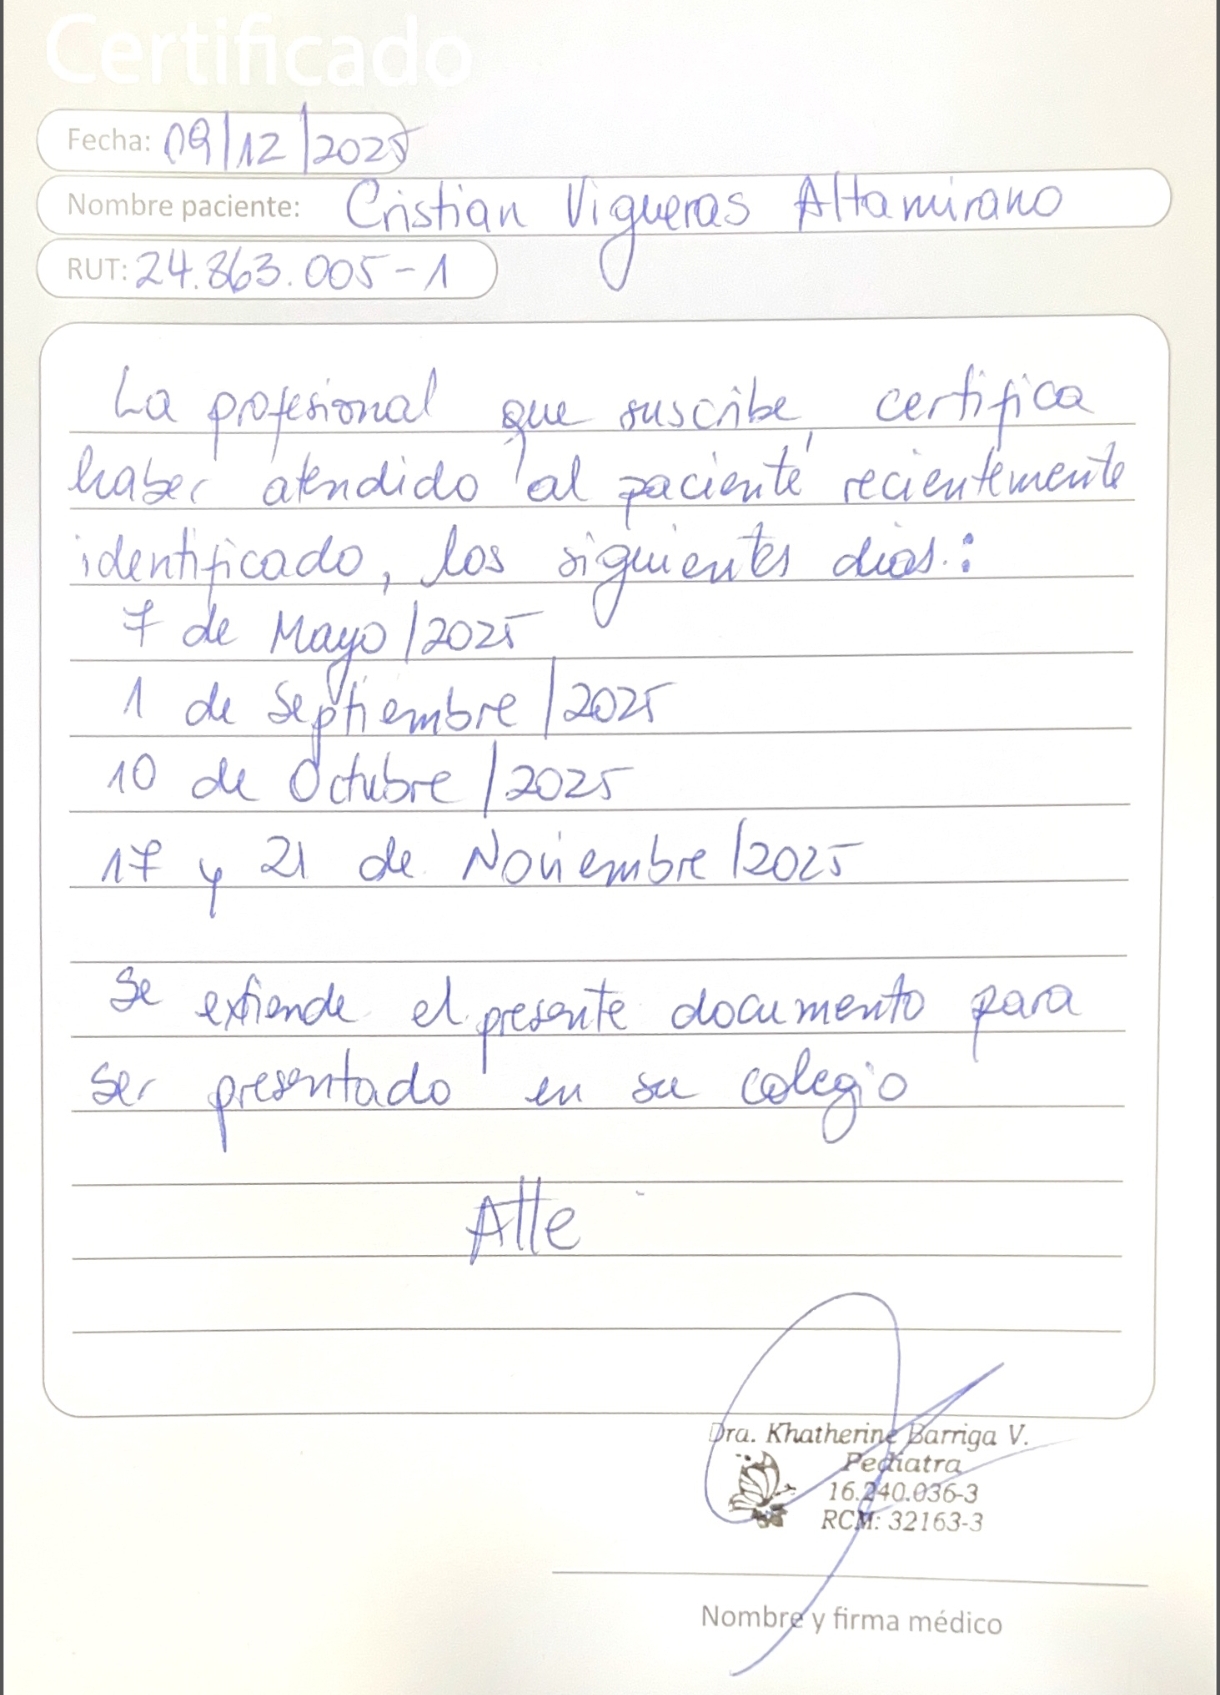 Certificado
Fecha: 09/12/2025
Nombre paciente: Cristian Vigueras Altamirano
RUT: 24.863.005-1
La profesional que suscribe, certifica
haber atendido al paciente recientemente
identificado, los siguientes dias.:
7 de Mayo/2025
1 de Septiembre/2025
10 de Octubre/2025
17 y 21 de Noviembre/2025
Se extiende el presente documento para
ser presentado en su colegio
Atte
Dra. Khatherine Barriga V.
Pediatra
16.240.036-3
RCM: 32163-3
Nombre y firma médico